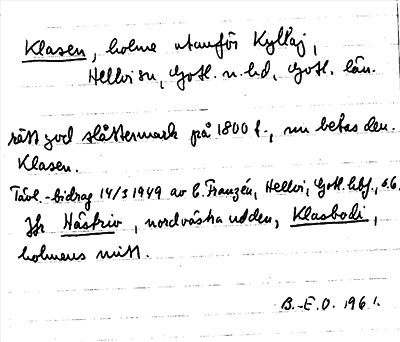 Klasen, holme utanför Kyllaj,
Hellvi sn, Gotl. n. hd, Gotl. län.
rätt god slåttermark på 1800 t., nu betas den.
Klasen.
Tävl.-bidrag 14/3 1949 av E. Franzén, Hellvi, Gotl. lbf., s.6.
Jfr Hästriv, nordvästra udden, Klasbodi,
holmens mitt.
B.-E.O. 1961.